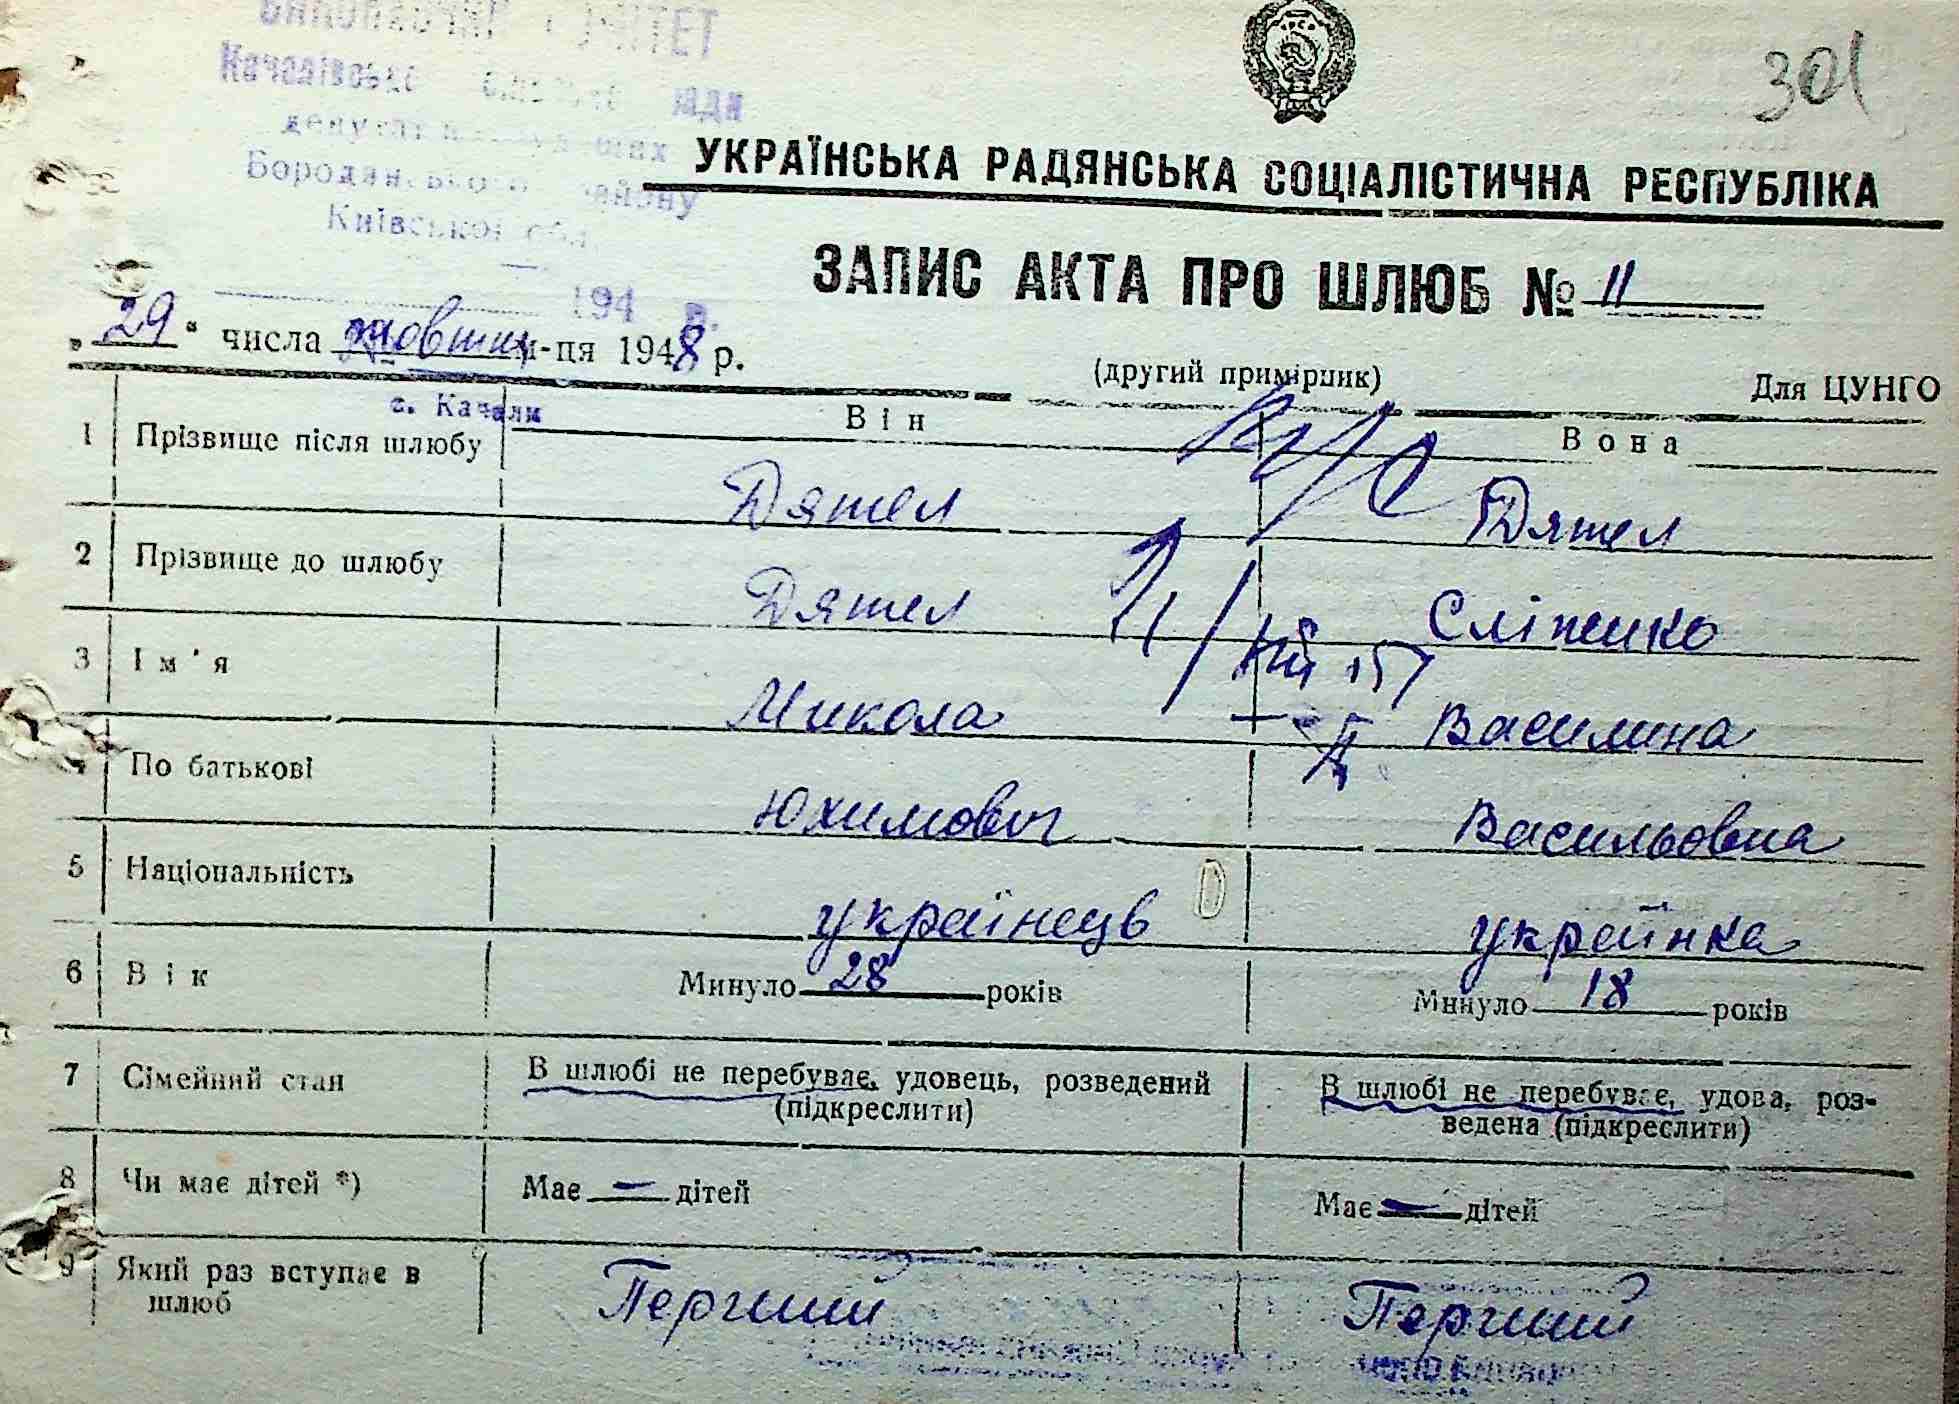 301
КОМІТЕТ
Качалівської сільської ради
депутатів трудящих
Бородянського району
Київської обл.
194 р.
УКРАЇНСЬКА РАДЯНСЬКА СОЦІАЛІСТИЧНА РЕСПУБЛІКА
ЗАПИС АКТА ПРО ШЛЮБ № 11
„29“ числа жовтня м-ця 1948 р.
(другий примірник)
Для ЦУНГО
с. Качали
Він Вона
1 Прізвище після шлюбу Дятел Дятел
2 Прізвище до шлюбу Дятел Сліпенко
3 Ім'я Микола Василина
По батькові Юхимович Васильовна
5 Національність українець українка
6 Вік Минуло 28 років Минуло 18 років
7 Сімейний стан В шлюбі не перебуває, удовець, розведений (підкреслити) В шлюбі не перебуває, удова, роз-
ведена (підкреслити)
8 Чи має дітей *) Має — дітей Має — дітей
9 Який раз вступає в шлюб Перший Перший